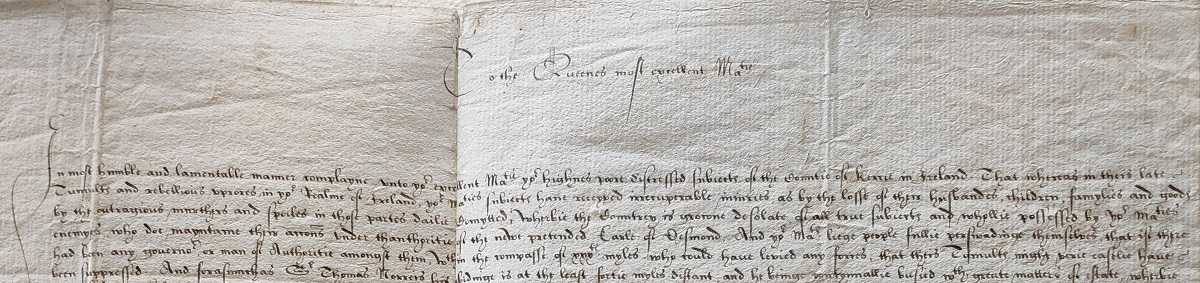 To the Queenes most excellent Matie
In most humble and lamentable manner complayne unto yor excellent Matie yor highnes poore distressed subiects of the Countie of Kerrie in Ireland. That whereas in theis late
Tumults and rebellious uprores in yor Realme of Ireland, yor Maties subiects have receyved irrecuperable iniuries as by the losse of there husbandes, children, famylies and goods
by the outragious murthers and spoiles in those partes dailie Comytted, Whereby the Countrey is growne desolate of all true subiects and whollie possessed by yor Maties
enemyes who doe mayntame their accons under thauthoritie of the newe pretended Earle of Desmond. And yor Maties liege people fullie perswadinge themselves that if there
had been any governor or man of Authoritie amongst them, within the compasse of xxtie myles who could have levied any forces, that theis Tumults might verie easelie have
been suppressed. And forasmuch as Sr Thomas Norreis his